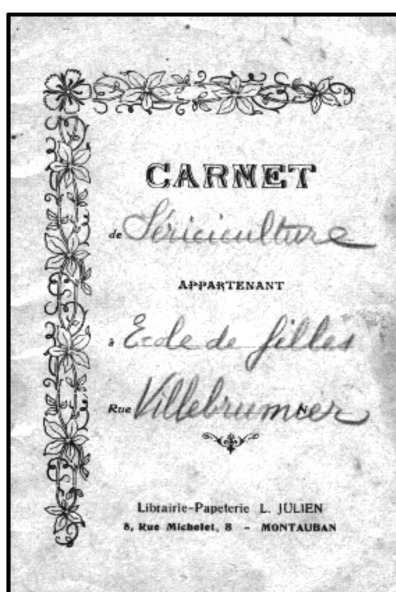 CARNET
de Sériciculture
APPARTENANT
à Ecole de filles
Rue Villebrumier N
Librairie-Papeterie L. JULIEN
8, Rue Michelet, 8 - MONTAUBAN